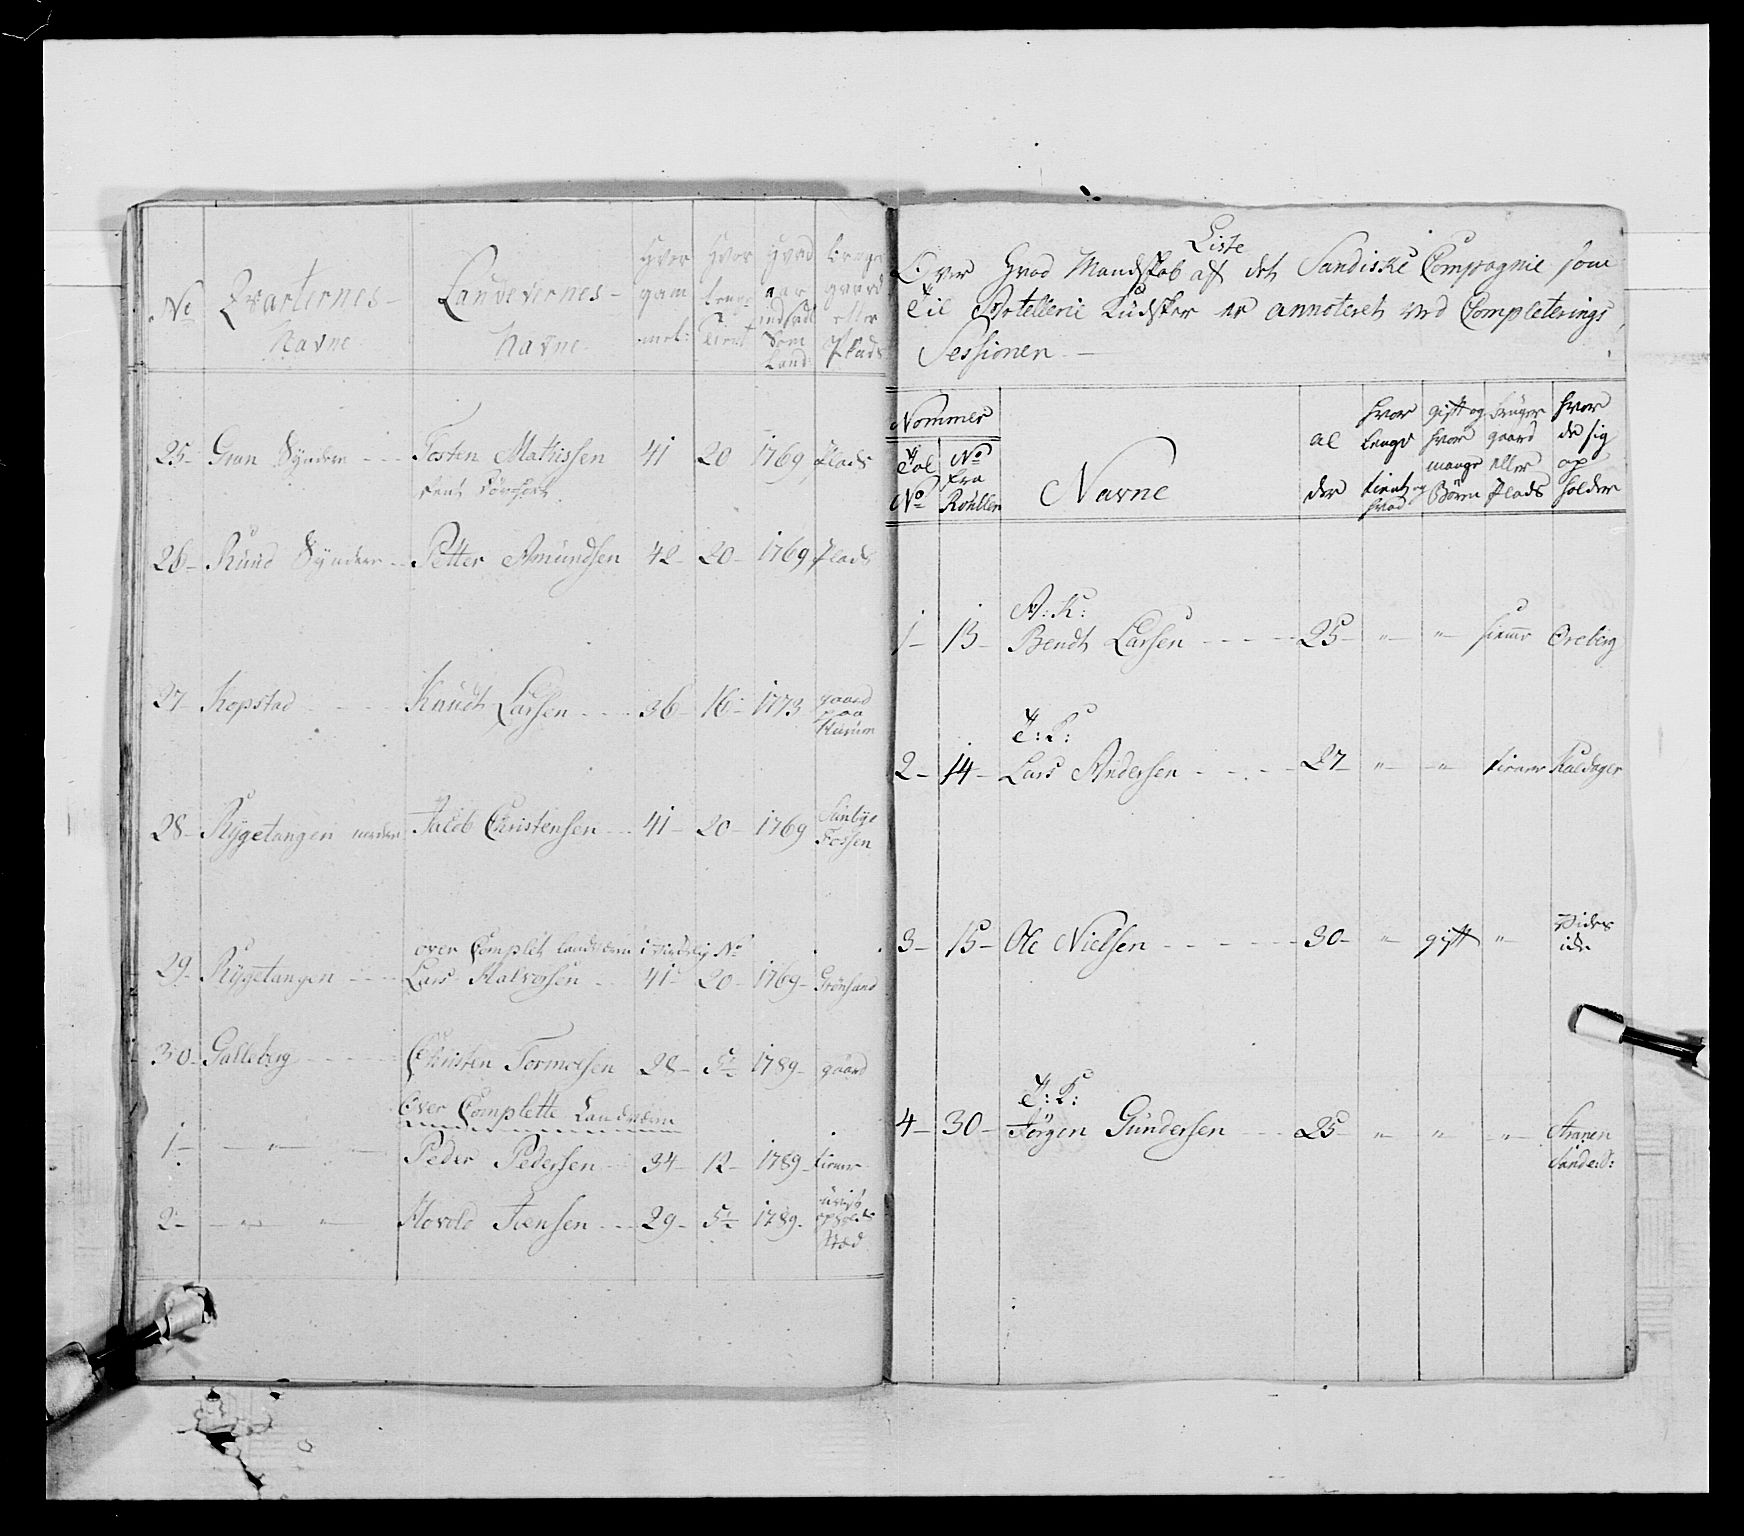 No Qvarternes Navne Landevernes Navne Hvor gam mel: Hvor lenge Tient Hvad aar indsadt Som Land: bruge gaard eller Plads
25 Gran Syndere Tosten Mathissen 41 20 1769 Plads
26 Ruud Syndere Petter Amundsen 42 20 1769 Plads
27 Kopstad Knudt Larsen 36 16 1773 gaard paa
28 Rygetangen nordre Jacob Christensen 41 20 1769 Sunbye Fossen
over Complet Landværn
29 Rygetangen Lars Halvorsen 41 20 1769 Grønsand
30 Galleberg Christen Tormoesen 28 5½ 1789 gaard
Over Complette Landværn
1 " Peder Pedersen 34 12 1789 tiener
2 " " Hovold Jensen 29 5½ 1789 uvist opholds stæd
Liste
Over Hvad Mandskab af det Sandiske Compagnie som
Til Artellerie Kudsker er annoteret ved Completerings
Sessionen
Nommer
Tal No No fra Rullen Navne al der hvor lenge tient og hvad gift og hvor mange Børn bruger gaard eller Plads hvor de sig op holder
A: K:
1 13 Bendt Larsen 25 " " hiemme Oreberg
T: K:
2 14 Lars Andersen 27 " " tiener
3 15 Ole Nielsen 30 " gift "
T: K:
4 30 Jørgen Gundersen 25 " " " Stranen
Sande: S: